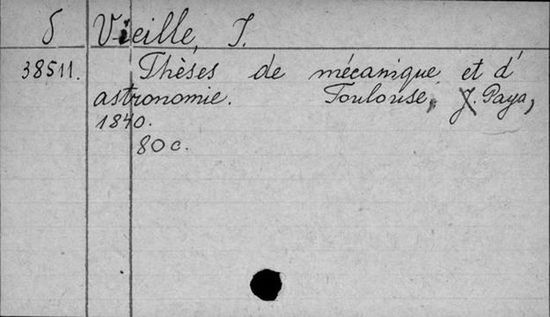 δ Vieille, J.
38511. Thèses de mécanique et d'
astronomie. Toulouse, J. Paya,
1840.
80 c.